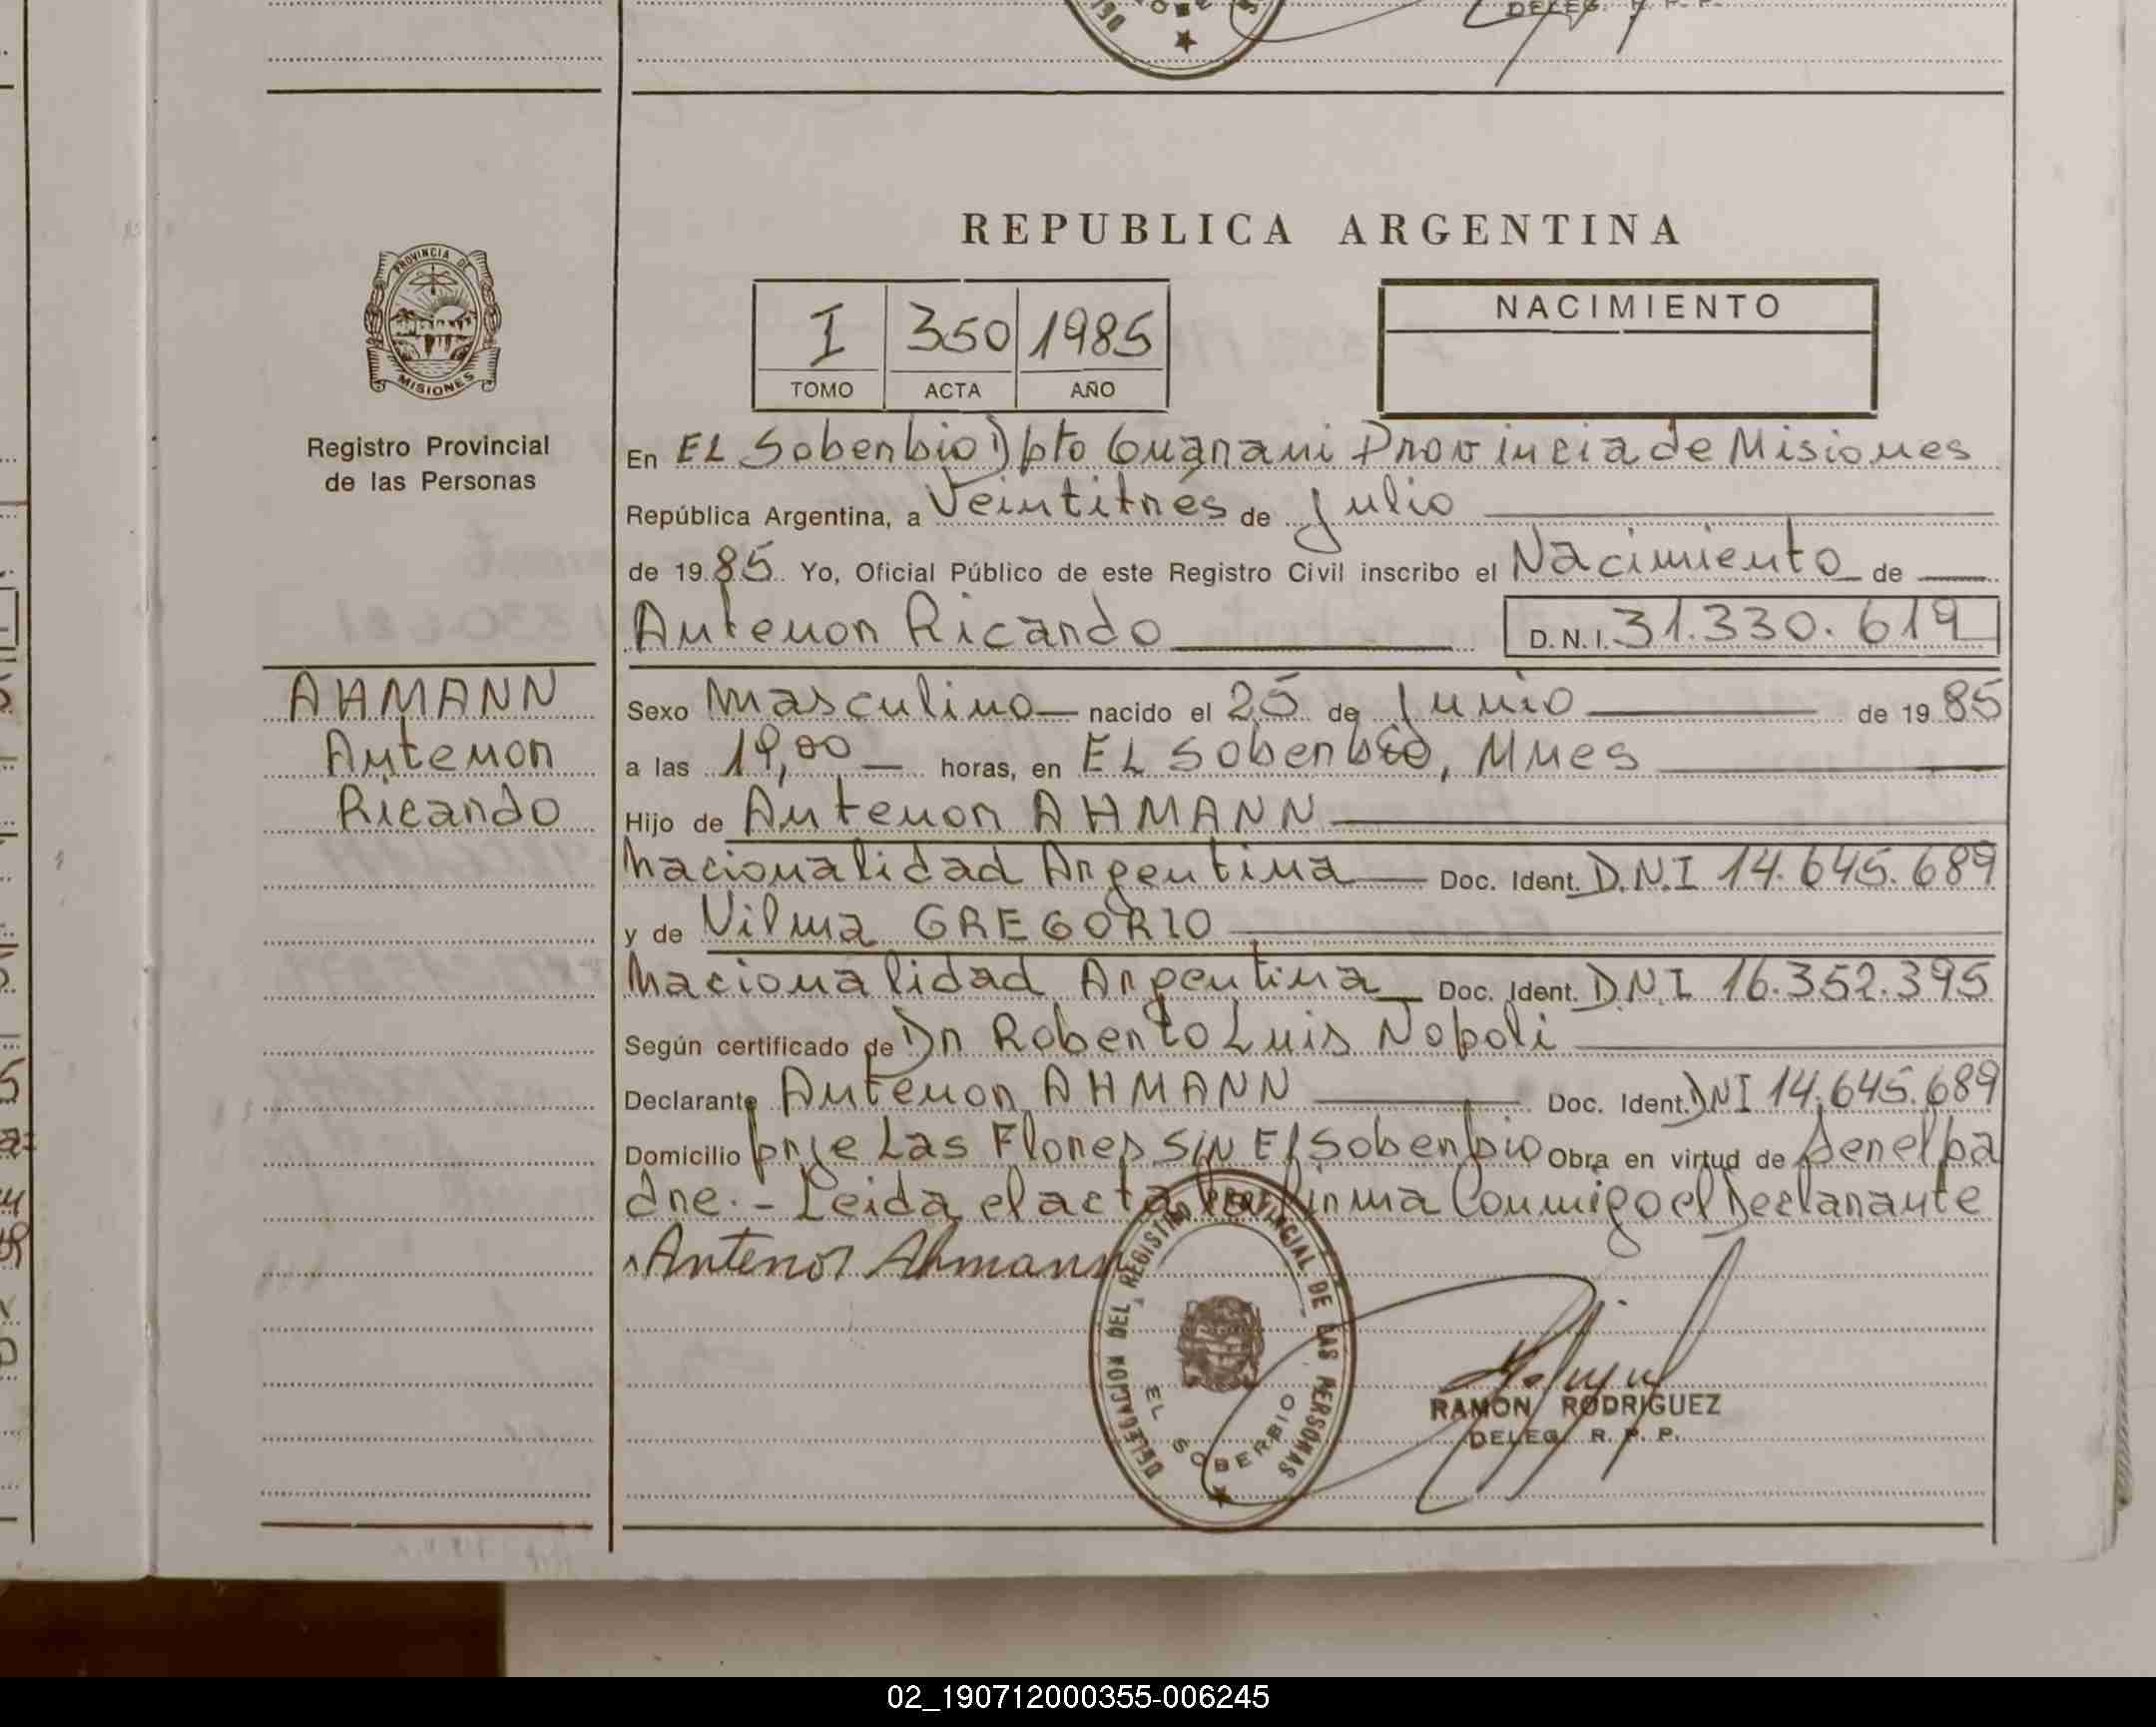 DELEG. R. P. P.
REPUBLICA ARGENTINA
PROVINCIA DE
MISIONES
I 350 1985
TOMO ACTA AÑO
NACIMIENTO
Registro Provincial
de las Personas
En EL Soberbio Dpto Guarani Provincia de Misiones
República Argentina, a Veintitrés de Julio
de 19 85 Yo, Oficial Público de este Registro Civil inscribo el Nacimiento de
Antenor Ricardo D.N.I. 31.330.619
AHMANN
Antenor
Ricardo
Sexo Masculino nacido el 25 de Junio de 19 85
a las 19,00 horas, en EL Soberbio, Mnes
Hijo de Antenor AHMANN
Nacionalidad Argentina Doc. Ident. D.N.I 14.645.689
y de Vilma GREGORIO
Nacionalidad Argentina Doc. Ident. D.N.I 16.352.395
Según certificado de Dr Roberto Luis Nopoli
Declarante Antenor AHMANN Doc. Ident. DNI 14.645.689
Domicilio Las Flores S/N El Soberbio Obra en virtud de Ser el pa
dre.- Leida el acta la firma Conmigo el Declarante
Antenor Ahmann
DELEGACION DEL REGISTRO PROVINCIAL DE LAS PERSONAS
EL SOBERBIO
RAMON RODRIGUEZ
DELEG. R. P. P.
02_190712000355-006245